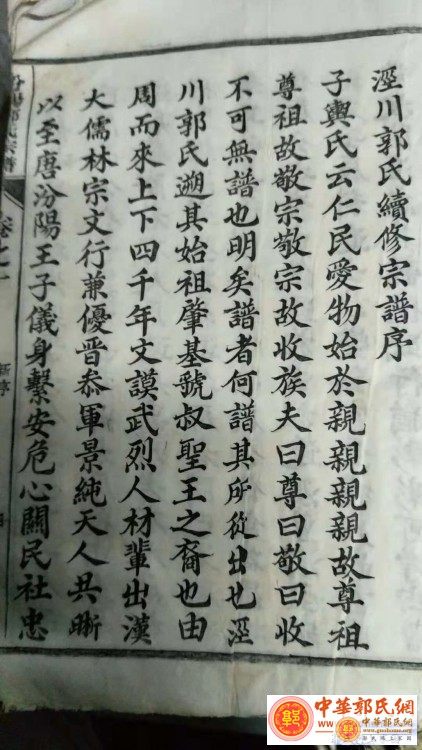 涇川郭氏續修宗譜序
子輿氏云仁民愛物始於親親親親故尊祖
尊祖故敬宗敬宗故收族夫曰尊曰敬曰收
不可無譜也明矣譜者何譜其所從出也涇
川郭氏遡其始祖肇基虢叔聖王之裔也由
周而來上下四千年文謨武烈人材輩出漢
大儒林宗文行兼優晉叅軍景純天人共晰
以至唐汾陽王子儀身繫安危心關民社忠
汾陽郭氏宗譜
卷之一
新序
中華郭氏網
中華郭氏網
www.guohome.org